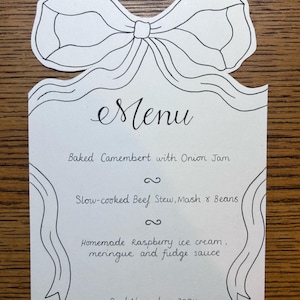 Menu
Baked Camembert with Onion Jam
Slow-cooked Beef Stew, Mash & Beans
Homemade Raspberry ice cream,
meringue and fudge sauce